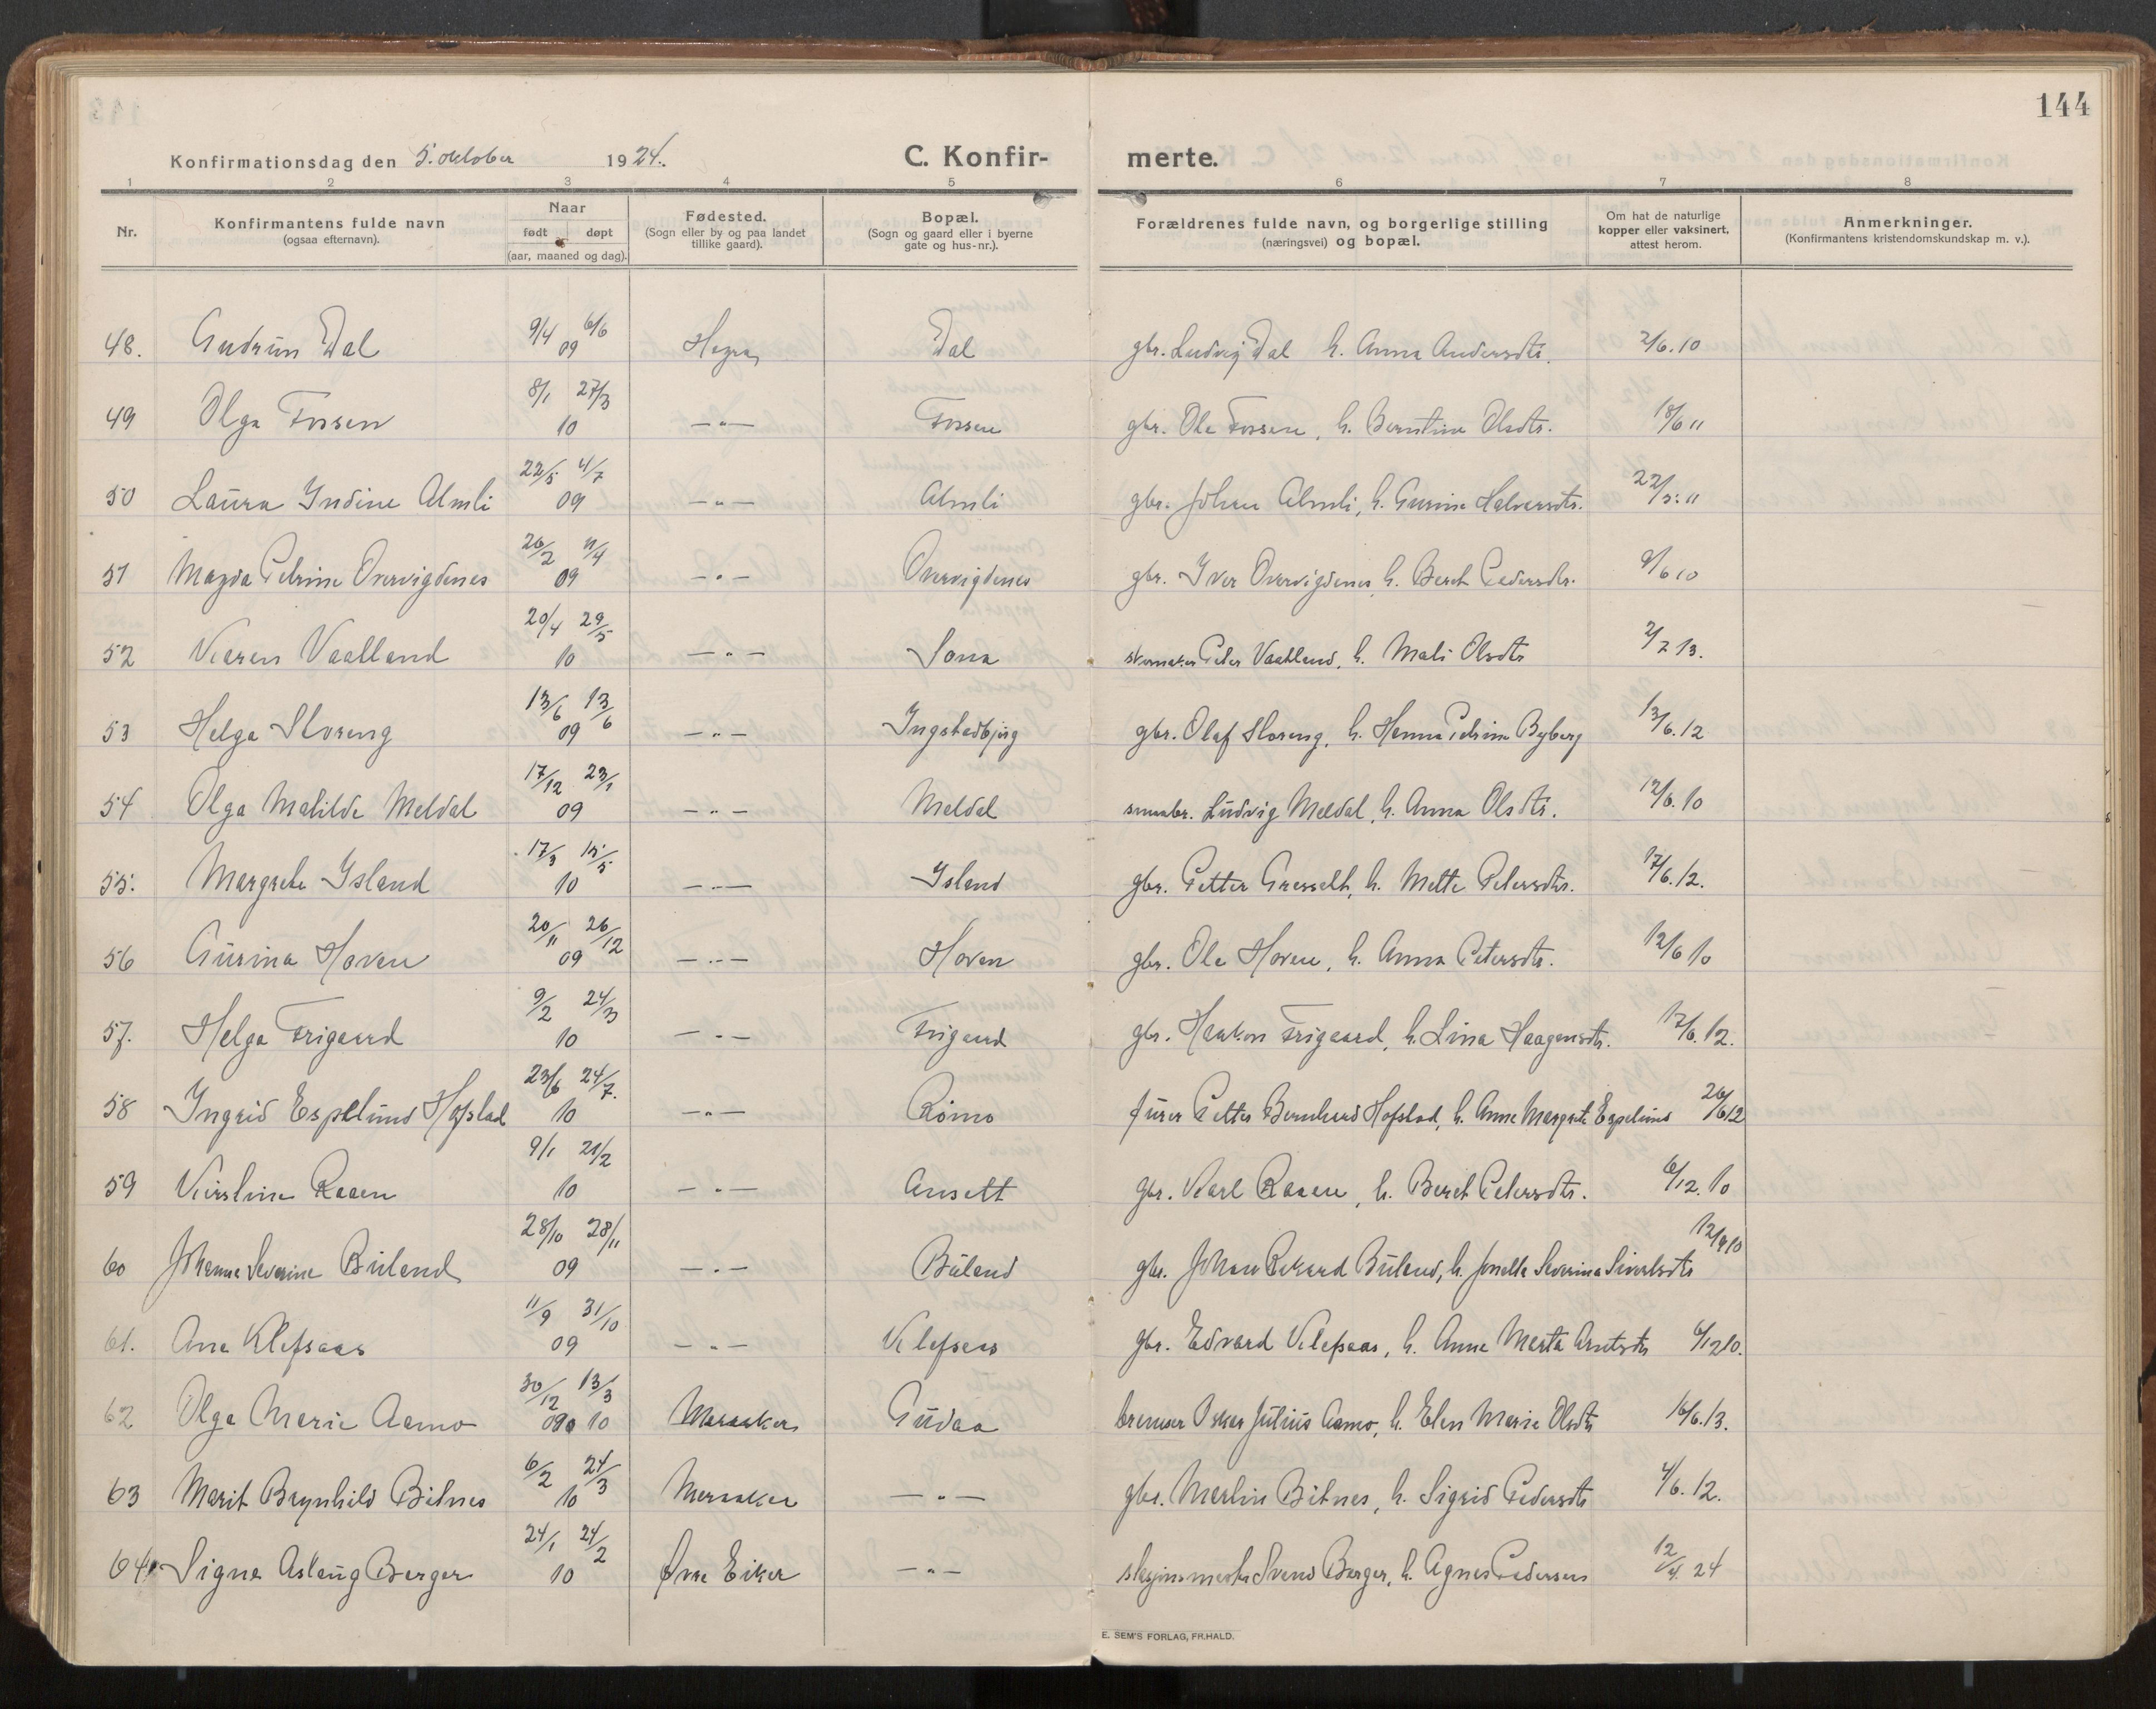 144
Konfirmationsdag den 5. oktober 1924. C. Konfir- merte.
1 2 3 4 5 6 7 8
Nr. Konfirmantens fulde navn (ogsaa efternavn). Naar født døpt (aar, maaned og dag). Fødested. (Sogn eller by og paa landet tillike gaard). Bopæl. (Sogn og gaard eller i byerne gate og hus-nr.). Forældrenes fulde navn, og borgerlige stilling (næringsvei) og bopæl. Om hat de naturlige kopper eller vaksinert, attest herom. Anmerkninger. (Konfirmantens kristendomskundskap m. v.).
48. Gudrun Dal 9/4 6/6 09 Hegra Dal gbr. Ludvig Dal h. Anna Andersdtr. 2/6.10
49 Olga Fossen 8/1 27/3 10 —"— Fossen gbr. Ole Fossen, h. Berntine Olsdtr. 18/6 11
50 Laura Indine Almli 22/5 4/7 09 —"— Almli gbr. Johan Almli, h. Gurine Halvorsdtr. 22/5.11
51 Magda Petrine Overvigdenes 26/2 11/4 09 —"— Overvigdenes gbr. Iver Overvigdenes, h. Beret Pedersdtr. 9/6 10
52 Karen Vaatland 20/4 29/5 10 —"— Sona skomaker Peter Vaatland, h. Mali Olsdtr 2/2 13.
53 Helga Storeng 13/6 13/6 09 —"— Ingstadbjørg gbr. Olaf Storeng, h. Hanna Petrine Byberg 13/6.12
54 Olga Matilde Meldal 17/12 23/1 09 —"— Meldal smaabr. Ludvig Meldal, h. Anna Olsdtr. 12/6.10
55. Margrete Ysland 17/3 15/5 10 —"— Ysland gbr. Petter Gresselt, h. Mette Petersdtr. 17/6.12.
56 Gurina Hoven 20/11 26/12 09 —"— Hoven gbr. Ole Hoven, h. Anna Petersdtr. 12/6 10
57. Helga Frigaard 9/2 24/3 10 —"— Frigaard gbr. Haakon Frigaard, h. Lina Haagensdtr. 17/6.12.
58 Ingrid Espelund Hofstad 23/6 24/7. 10 —"— Romo furer Petter Bernhard Hofstad, h. Anne Margrete Espelund 26/6 12
59 Kirstine Raaen 9/1 21/2 10 —"— Ansett gbr. Karl Raaen, h. Beret Petersdtr. 6/12.10
60 Johanna Severine Buland 28/10 28/11 09 —"— Buland gbr. Johan Rikard Buland, h. Jonetta Severina Sivertsdtr 12/4 10
61. Ane Klefsaas 11/9 31/10 09 —"— Klefsaas gbr. Edvard Klefsaas, h. Anne Marta Arntsdtr 6/12 10.
62 Olga Marie Aamo 30/12 13/3 09 10 Meraaker Gudaa bremser Oskar Julius Aamo, h. Elen Marie Olsdtr 16/6.13.
63 Marit Brynhild Bitnes 6/2 24/3 10 Meraaker —"— gbr. Martin Bitnes, h. Sigrid Pedersdtr 4/6.12.
64 Signe Aslaug Berger 24/1 24/2 10 Øvre Eiker —"— stasjonsmester Svend Berger, h. Agnes Pedersen 12/4. 24
E. SEM'S FORLAG, FR.HALD.